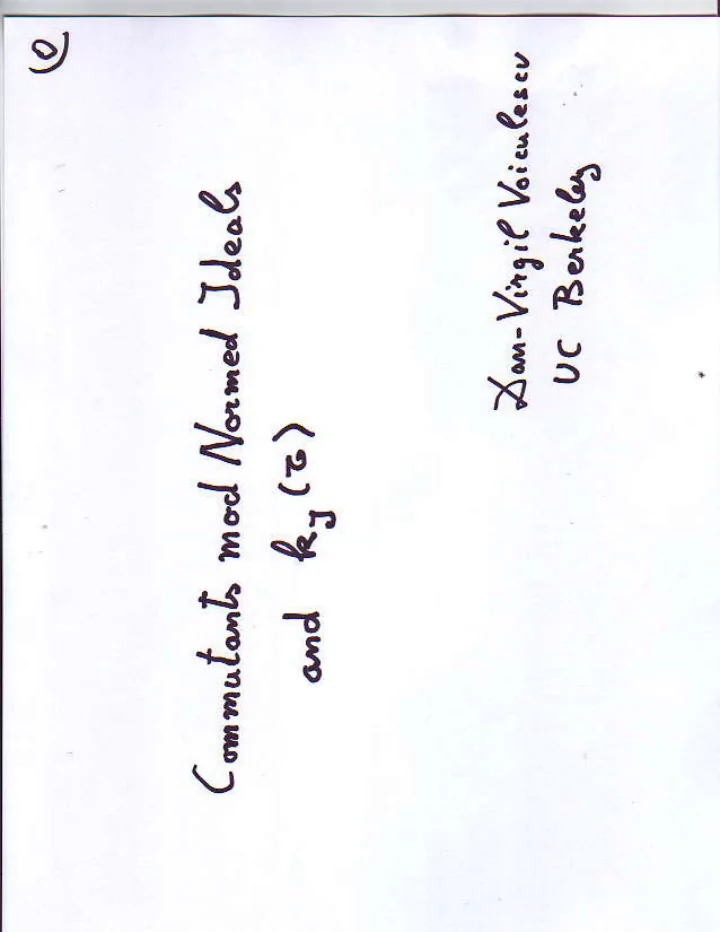 0)
Commutants mod Normed Ideals
and k_J(τ)
Dan-Virgil Voiculescu
UC Berkeley